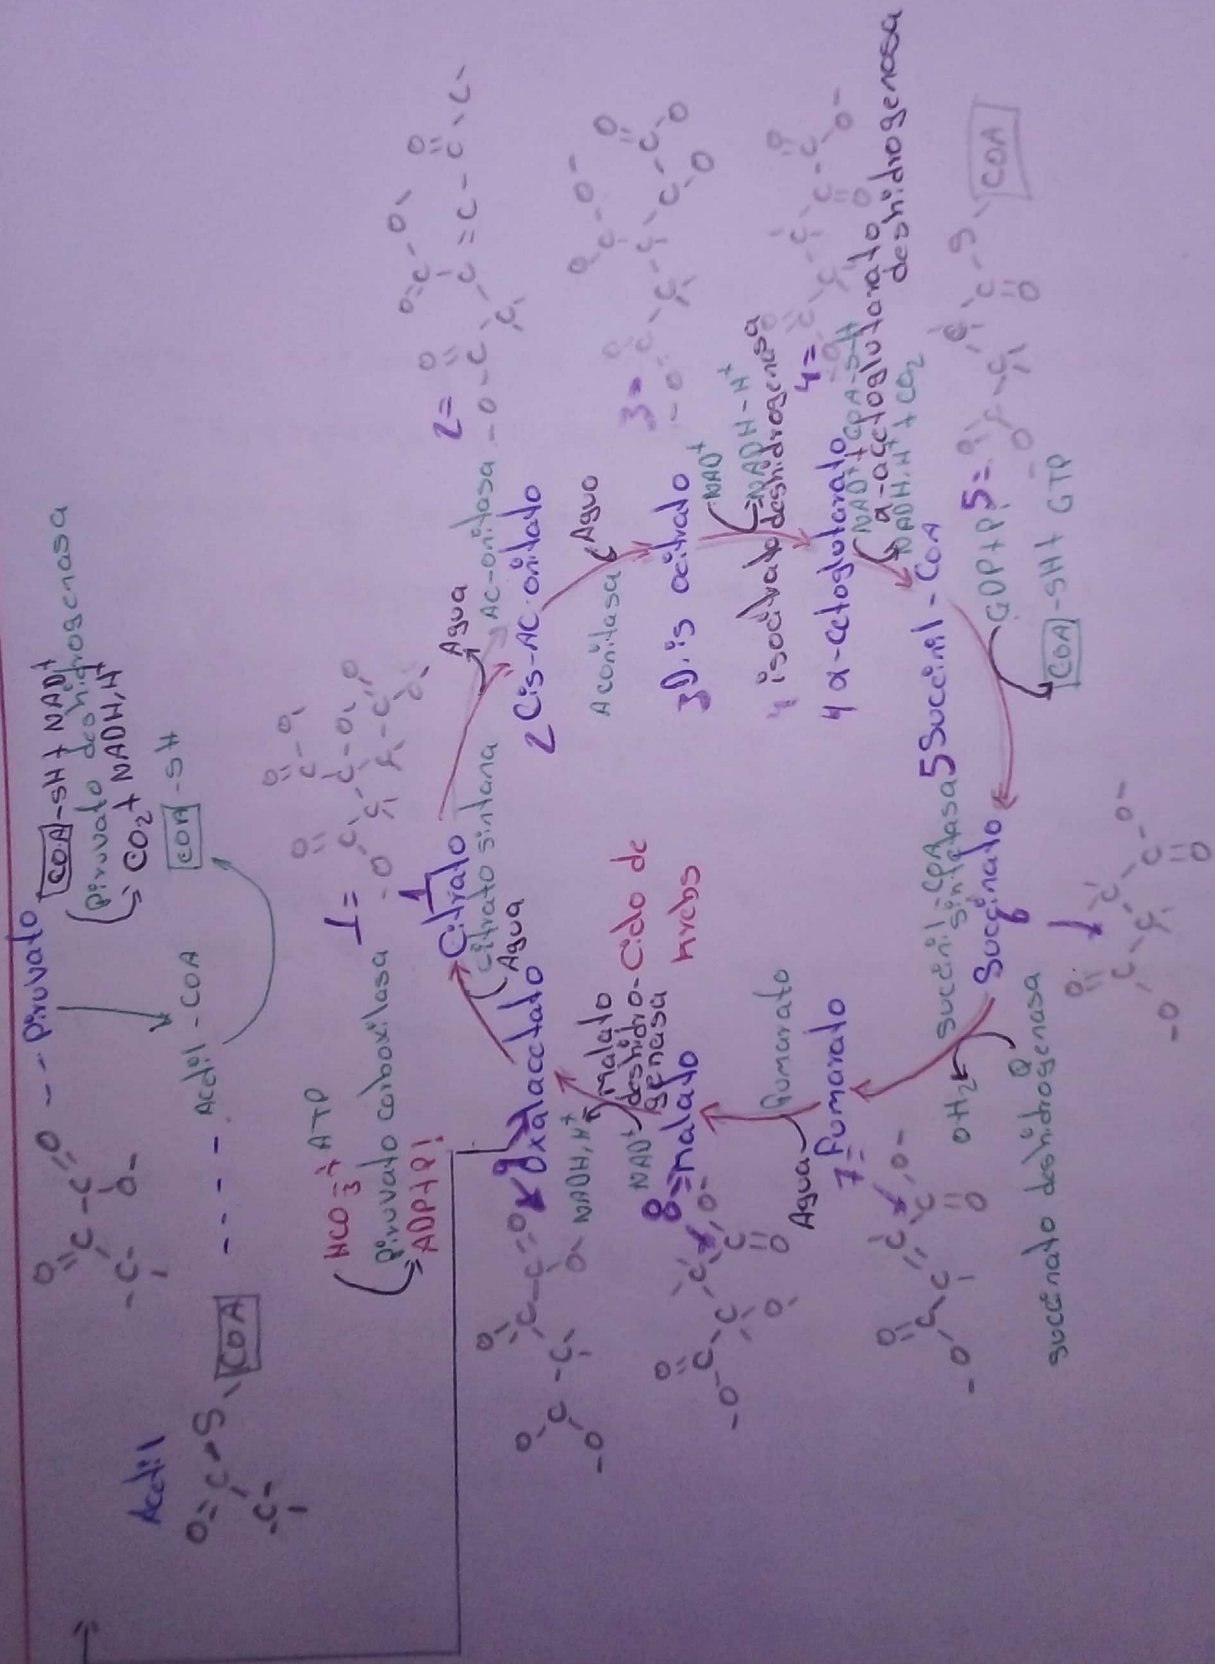 --- Piruvato
COA-SH + NAD+
Piruvato deshidrogenosa
CO2 + NADH,H+
COA-SH
Acetil
---- Acetil-COA
S-COA
HCO3- + ATP
Piruvato carboxilasa
ADP+P!
1=
Citrato
1
Citrato sintana
Agua
Agua
AC-onitasa
2=
2 Cis-AC.onitato
Aconitasa
Aguo
3=
3 D.is ocitrato
NAD+
NADH-H+
4 isocitrato deshidrogenasa
4=
4 α-cetoglutarato
NAD+ + COA-S-H
α-acetoglutarato
deshidrogenosa
NADH,H+ + CO2
5 Succinil-COA
5=
S-COA
GDP+P!
COA-SH + GTP
succinil-COA
sintetasa
Succinato
6
succinato deshidrogenasa
QH2
Q
7=
Fumarato
Fumarato
Agua
8=malato
NAD+
NADH,H+
malato
deshidro-
genasa
9
Oxalacetato
Ciclo de
krebs